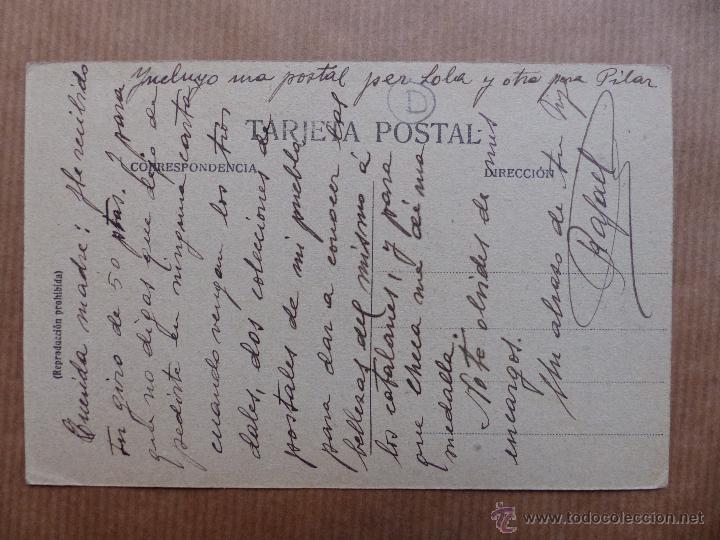 Incluyo una postal per Lola y otra para Pilar
D
TARJETA POSTAL
CORRESPONDENCIA
DIRECCIÓN
(Reproducción prohibida)
Querida madre: He recibido
tu giro de 50 ptas. Y para
que no digas que dejo de
pedirte en ninguna carta
cuando vengan los tios
dales, dos colecciones de
postales de mi pueblo
para dar a conocer las
bellezas del mismo á
los catalanes; y para
que Checa me dé una
medalla.
No te olvides de mis
encargos.
Un abrazo de tu hijo
Rafael
© todocoleccion - www.todocoleccion.net